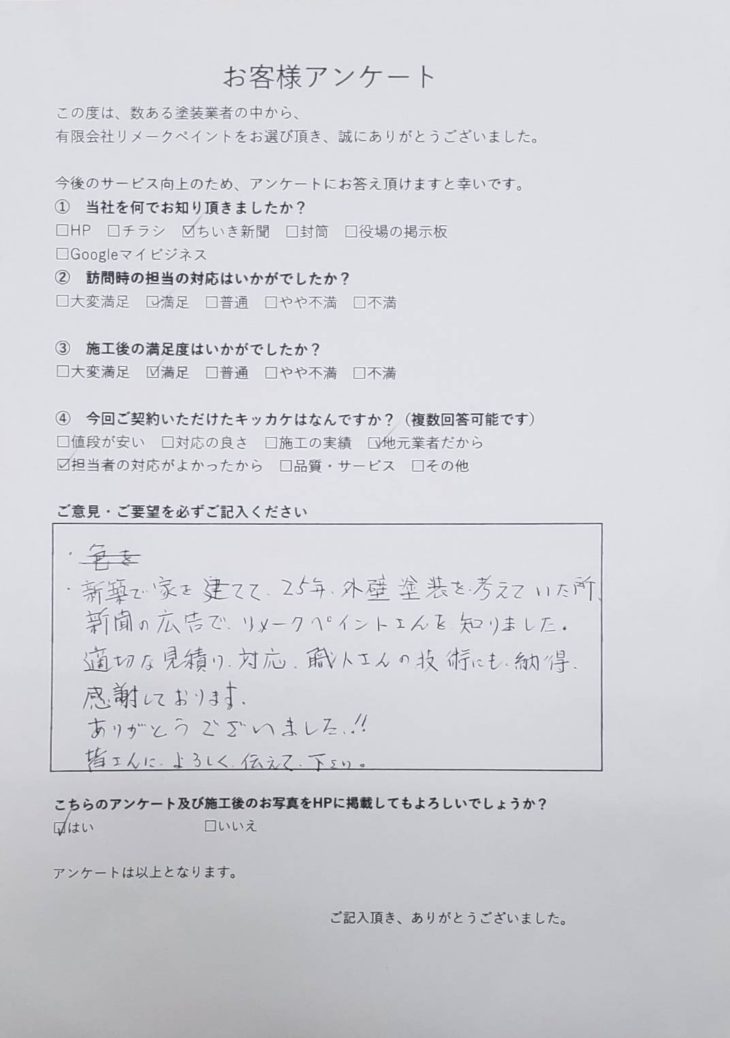 お客様アンケート
この度は、数ある塗装業者の中から、
有限会社リメークペイントをお選び頂き、誠にありがとうございました。
今後のサービス向上のため、アンケートにお答え頂けますと幸いです。
① 当社を何でお知り頂きましたか？
□HP □チラシ ☑ちいき新聞 □封筒 □役場の掲示板
□Googleマイビジネス
② 訪問時の担当の対応はいかがでしたか？
□大変満足 ☑満足 □普通 □やや不満 □不満
③ 施工後の満足度はいかがでしたか？
□大変満足 ☑満足 □普通 □やや不満 □不満
④ 今回ご契約いただけたキッカケはなんですか？（複数回答可能です）
□値段が安い □対応の良さ □施工の実績 ☑地元業者だから
☑担当者の対応がよかったから □品質・サービス □その他
ご意見・ご要望を必ずご記入ください
・新築で家を建てて、25年、外壁塗装を考えていた所、
新聞の広告で、リメークペイントさんを知りました。
適切な見積り、対応、職人さんの技術にも、納得、
感謝しております。
ありがとうございました!!
皆さんに、よろしく、伝えて、下さい。
こちらのアンケート及び施工後のお写真をHPに掲載してもよろしいでしょうか？
☑はい □いいえ
アンケートは以上となります。
ご記入頂き、ありがとうございました。